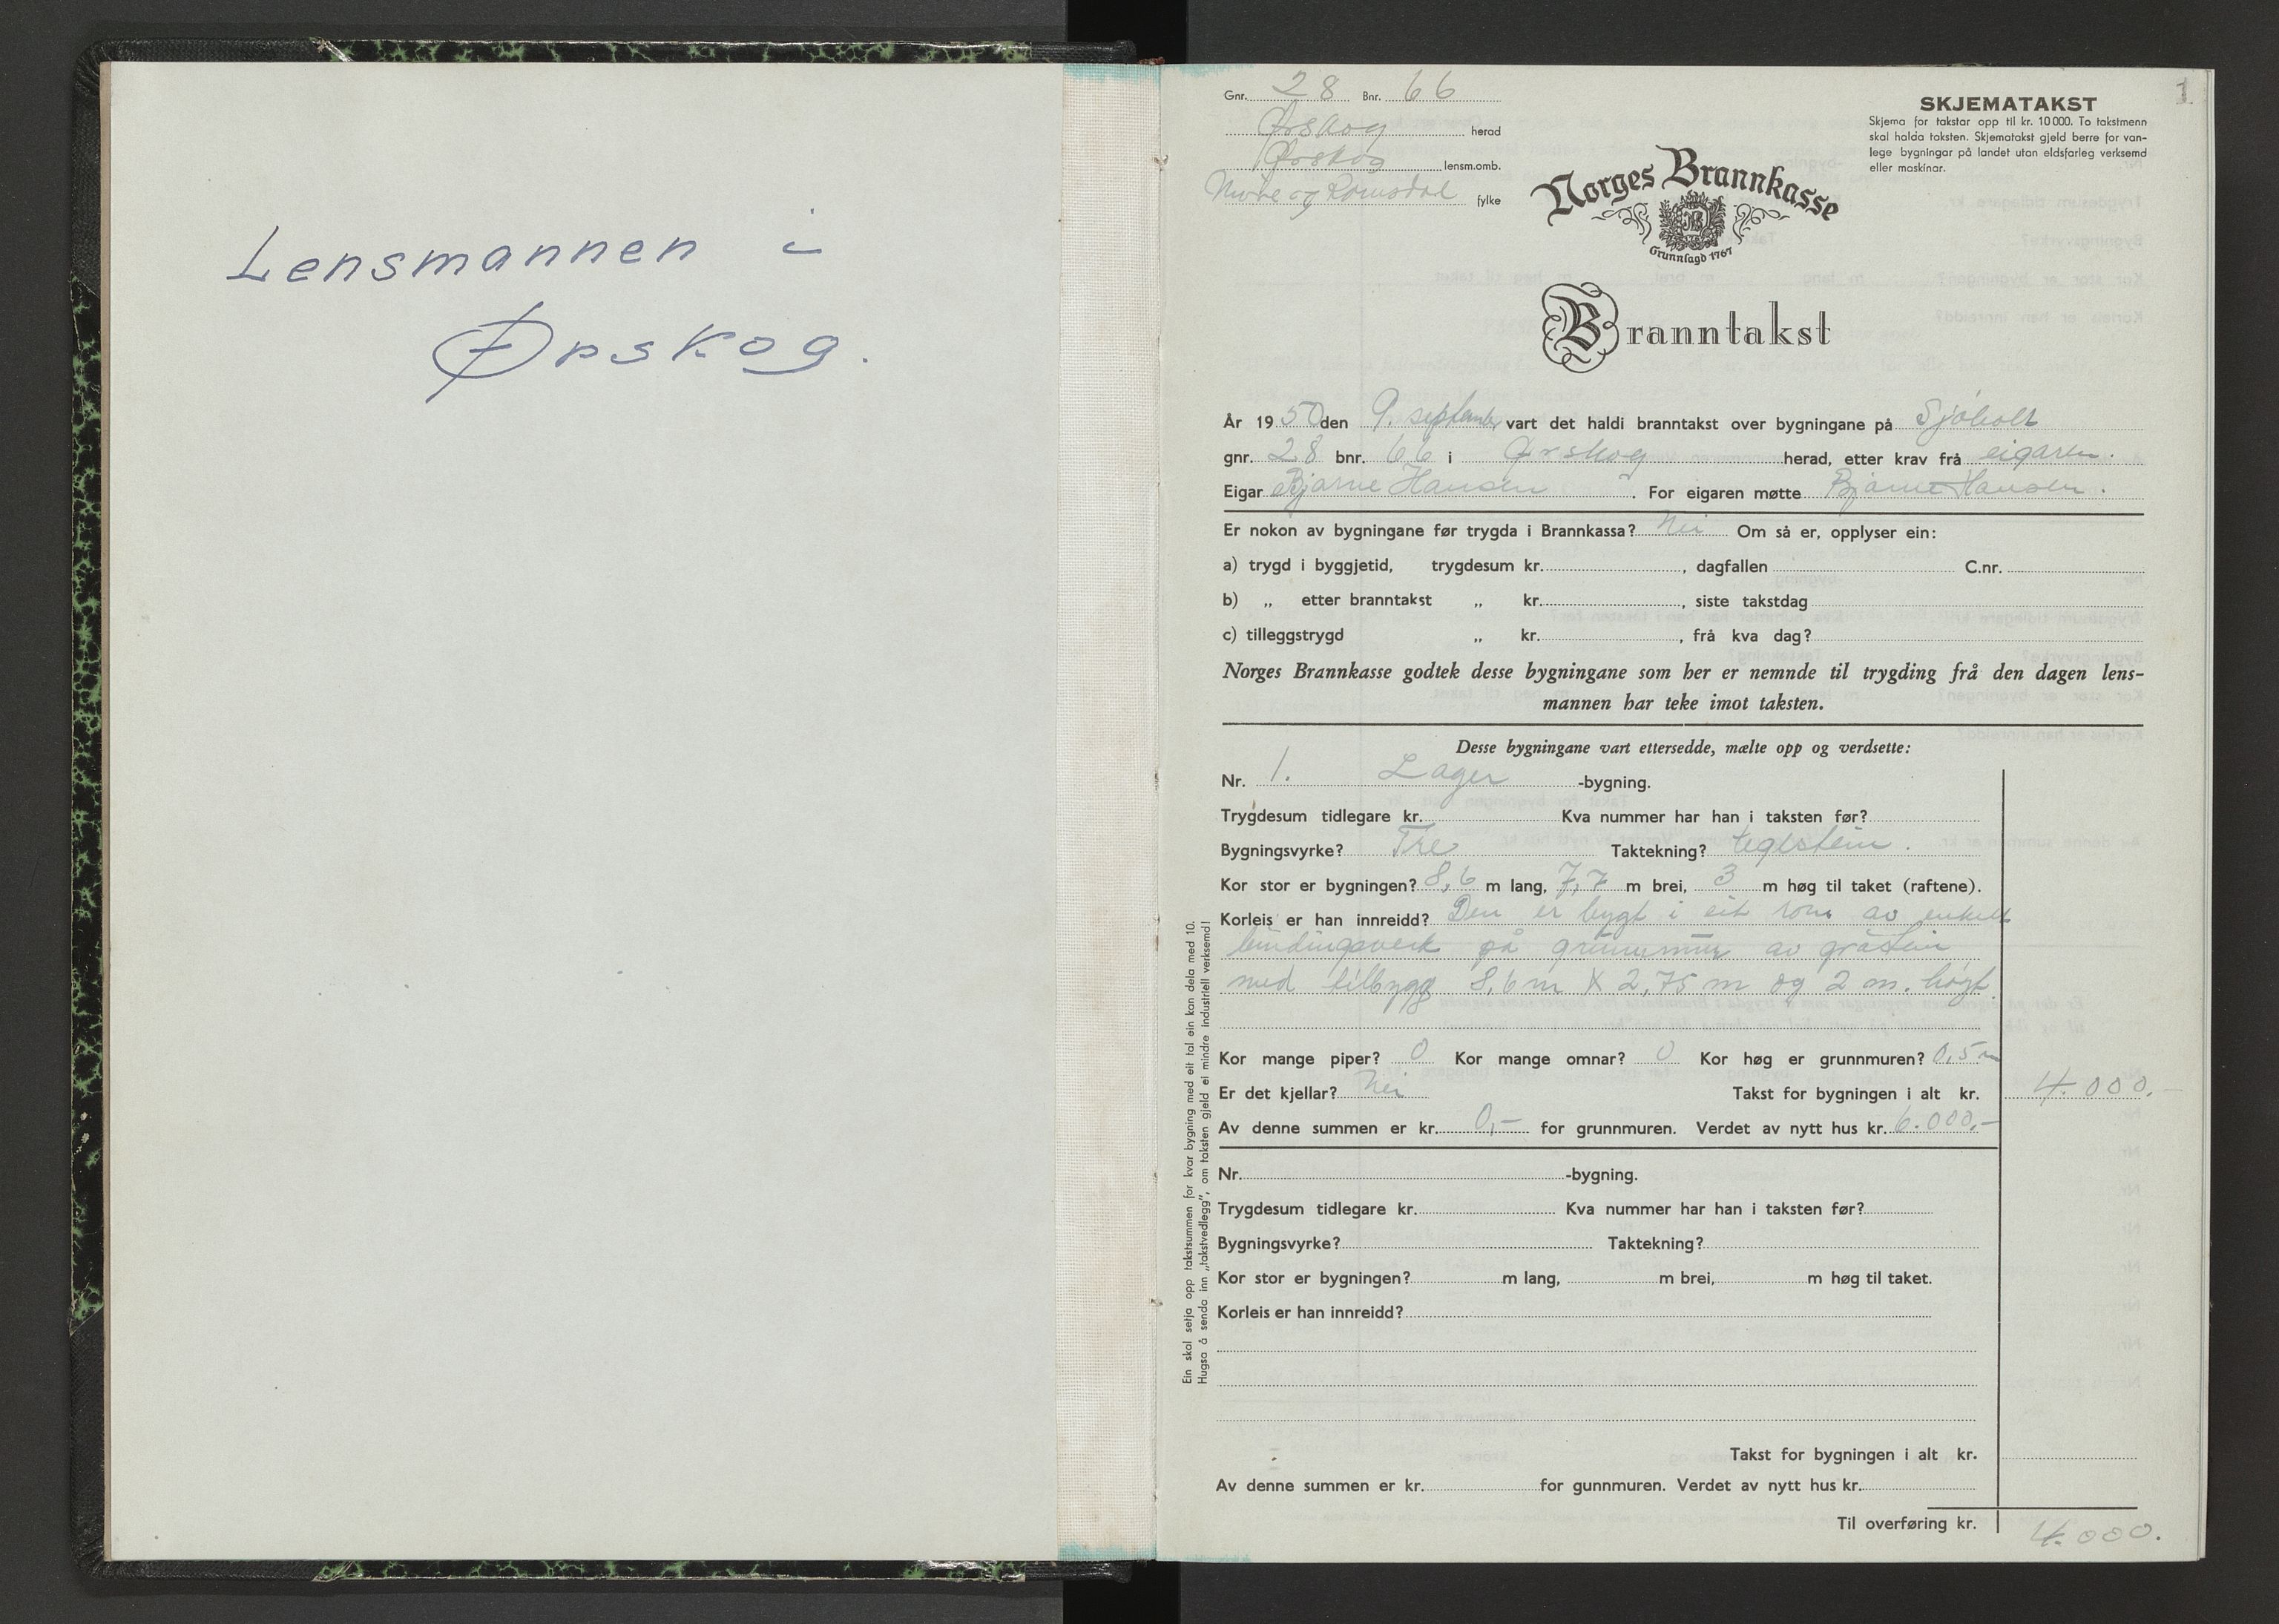 Lensmannen i
Ørskog.
1
Gnr. 28 Bnr. 66
Ørskog herad
Ørskog lensm.omb.
Møre og Romsdal fylke
SKJEMATAKST
Skjema for takstar opp til kr. 10 000. To takstmenn
skal halda taksten. Skjematakst gjeld berre for van-
lege bygningar på landet utan eldsfarleg verksemd
eller maskinar.
Norges Brannkasse
Grunnlagd 1767
Branntakst
År 1950 den 9. september vart det haldi branntakst over bygningane på Sjøholt
gnr. 28 bnr. 66 i Ørskog herad, etter krav frå eigaren.
Eigar Bjarne Hansen. For eigaren møtte Bjarne Hansen.
Er nokon av bygningane før trygda i Brannkassa? Nei Om så er, opplyser ein:
a) trygd i byggjetid, trygdesum kr. , dagfallen C.nr.
b) „ etter branntakst „ kr. , siste takstdag
c) tilleggstrygd „ kr. , frå kva dag?
Norges Brannkasse godtek desse bygningane som her er nemnde til trygding frå den dagen lens-
mannen har teke imot taksten.
Desse bygningane vart ettersedde, mælte opp og verdsette:
Nr. 1. Lager -bygning.
Trygdesum tidlegare kr. Kva nummer har han i taksten før?
Bygningsvyrke? Tre Taktekning? teglstein.
Kor stor er bygningen? 8,6 m lang, 7,7 m brei, 3 m høg til taket (raftene).
Korleis er han innreidd? Den er bygt i eit rom av enkelt
bindingsverk på grunnmur av gråstein
med tilbygg 8,6 m X 2,75 m og 2 m. høgt.
Kor mange piper? 0 Kor mange omnar? 0 Kor høg er grunnmuren? 0,5 m
Er det kjellar? Nei Takst for bygningen i alt kr. 4.000.-
Av denne summen er kr. 0,- for grunnmuren. Verdet av nytt hus kr. 6.000,-
Nr. -bygning.
Trygdesum tidlegare kr. Kva nummer har han i taksten før?
Bygningsvyrke? Taktekning?
Kor stor er bygningen? m lang, m brei, m høg til taket.
Korleis er han innreidd?
Takst for bygningen i alt kr.
Av denne summen er kr. for gunnmuren. Verdet av nytt hus kr.
Til overføring kr. 4.000.
Ein skal setja opp takstsummen for kvar bygning med eit tal ein kan dela med 10.
Hugsa å senda inn „takstvedlegg", om taksten gjeld ei mindre industriell verksemd!